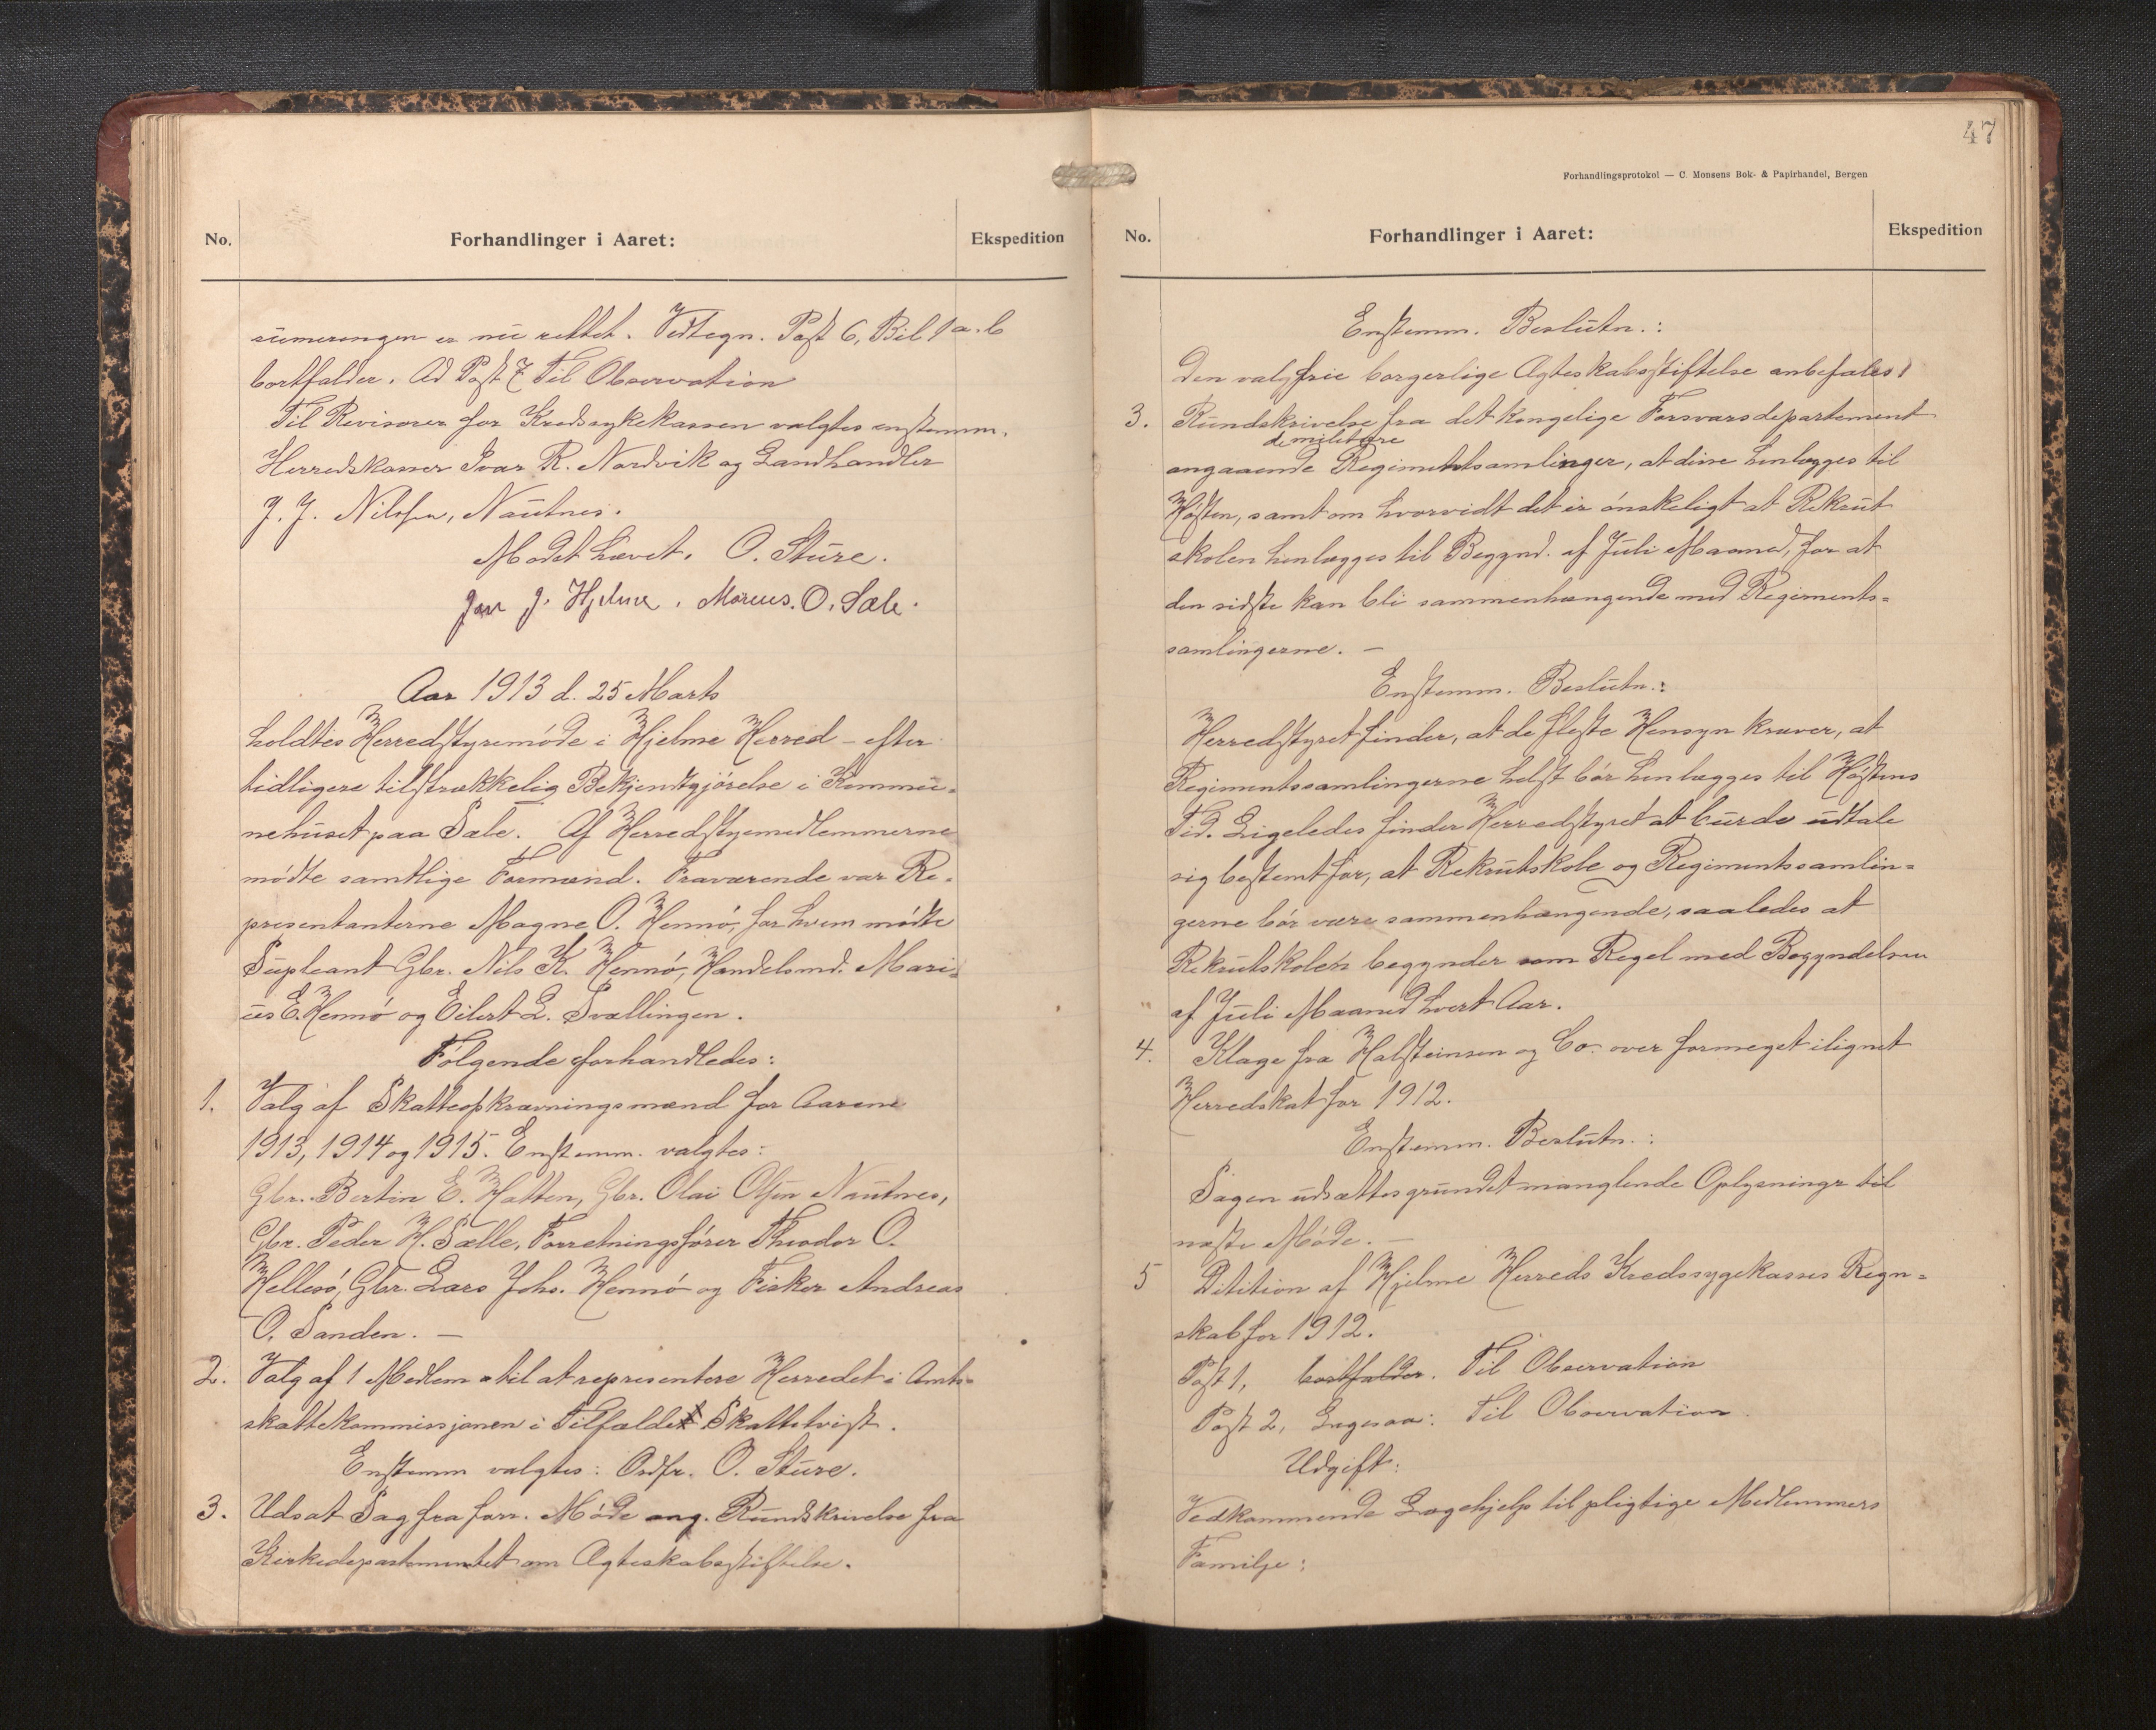 No.
Forhandlinger i Aaret:
Ekspedition
sumeringen er nu rettet. Vedtegn. Post 6, Bil 1 a. b
bortfalder. Ad Post 7 Til Observation
Til Revisorer for Kredssykekassen valgtes enstemm.
Herredskasser Ivar R. Nordvik og Landhandler
J. J. Nilssen, Nautnes.
Mødet hævet. O. Sture.
J. Hjelme. Marcus. O. Sæle.
Aar 1913 d. 25 Marts
holdtes Herredstyremøde i Hjelme Herred – efter
tidligere tilstrækkelig Bekjendtgjørelse i Kommu-
nehuset paa Sæle. Af Herredstyremedlemmerne
mødte samtlige Formænd. Fraværende var Re-
presentanterne Magne O. Hennø, for hvem mødte
Supleant Gbr. Nils K. Hennø, Handelsmd. Mari-
us E. Hennø og Eilert L. Svællingen.
Følgende forhandledes:
1. Valg af Skatteopkrævningsmænd for Aarene
1913, 1914 og 1915. Enstemm. valgtes:
Gbr. Bertin E. Hatten, Gbr. Olai Olsen Nautnes,
Gbr. Peder H. Sælle, Forretningsfører Theodor O.
Hellesø, Gbr. Lars Johs. Hennø og Fisker Andreas
O. Sanden. —
2. Valg af 1 Medlem til at representere Herredet i Amts-
skattekommissjonen i Tilfælde Skattetvist.
Enstemm valgtes: Ordfr. O. Sture.
3. Udsat Sag fra forr. Møde ang. Rundskrivelse fra
Kirkedepartementet om Ægteskabsstiftelse.
47
Forhandlingsprotokol — C. Monsens Bok- & Papirhandel, Bergen
No.
Forhandlinger i Aaret:
Ekspedition
Enstemm. Beslutn.:
Den valgfrie borgerlige Ægteskabsstiftelse anbefales!
3. Rundskrivelse fra det kongelige Forsvarsdepartement
de militære
angaaende Regimentssamlinger, at disse henlægges til
Høsten, samt om hvorvidt det er ønskeligt at Rekrut
skolen henlægges til Begynd. af Juli Maaned, for at
den sidste kan bli sammenhængende med Regiments-
samlingerne. —
Enstemm. Beslutn.:
Herredstyret finder, at de fleste Hensyn kræver, at
Regimentssamlingerne helst bør henlægges til Høstens
Tid. Ligeledes finder Herredstyret at burde udtale
sig bestemt for, at Rekrutskole og Regimentssamlin-
gerne bør være sammenhængende, saaledes at
Rekrutskolen begynder som Regel med Begyndelsen
af Juli Maaned hvert Aar.
4. Klage fra Halsteinsen og Co. over formeget ilignet
Herredskat for 1912.
Enstemm. Beslutn.:
Sagen udsættes grundet manglende Oplysninger til
næste Møde. —
5 Desition af Hjelme Herreds Kredssygekasses Regn-
skab for 1912.
Post 1, bortfalder. Til Observation
Post 2, Til Observation
Udgift:
Vedkommende Lægehjelp til pligtige Medlemmers
Familje: